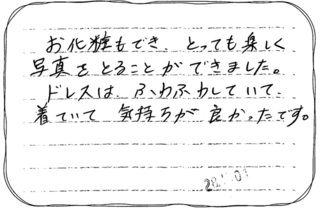 お化粧もでき、とっても楽しく
写真をとることができました。
ドレスは、ふわふわしていて、
着ていて 気持ちが良かったです。